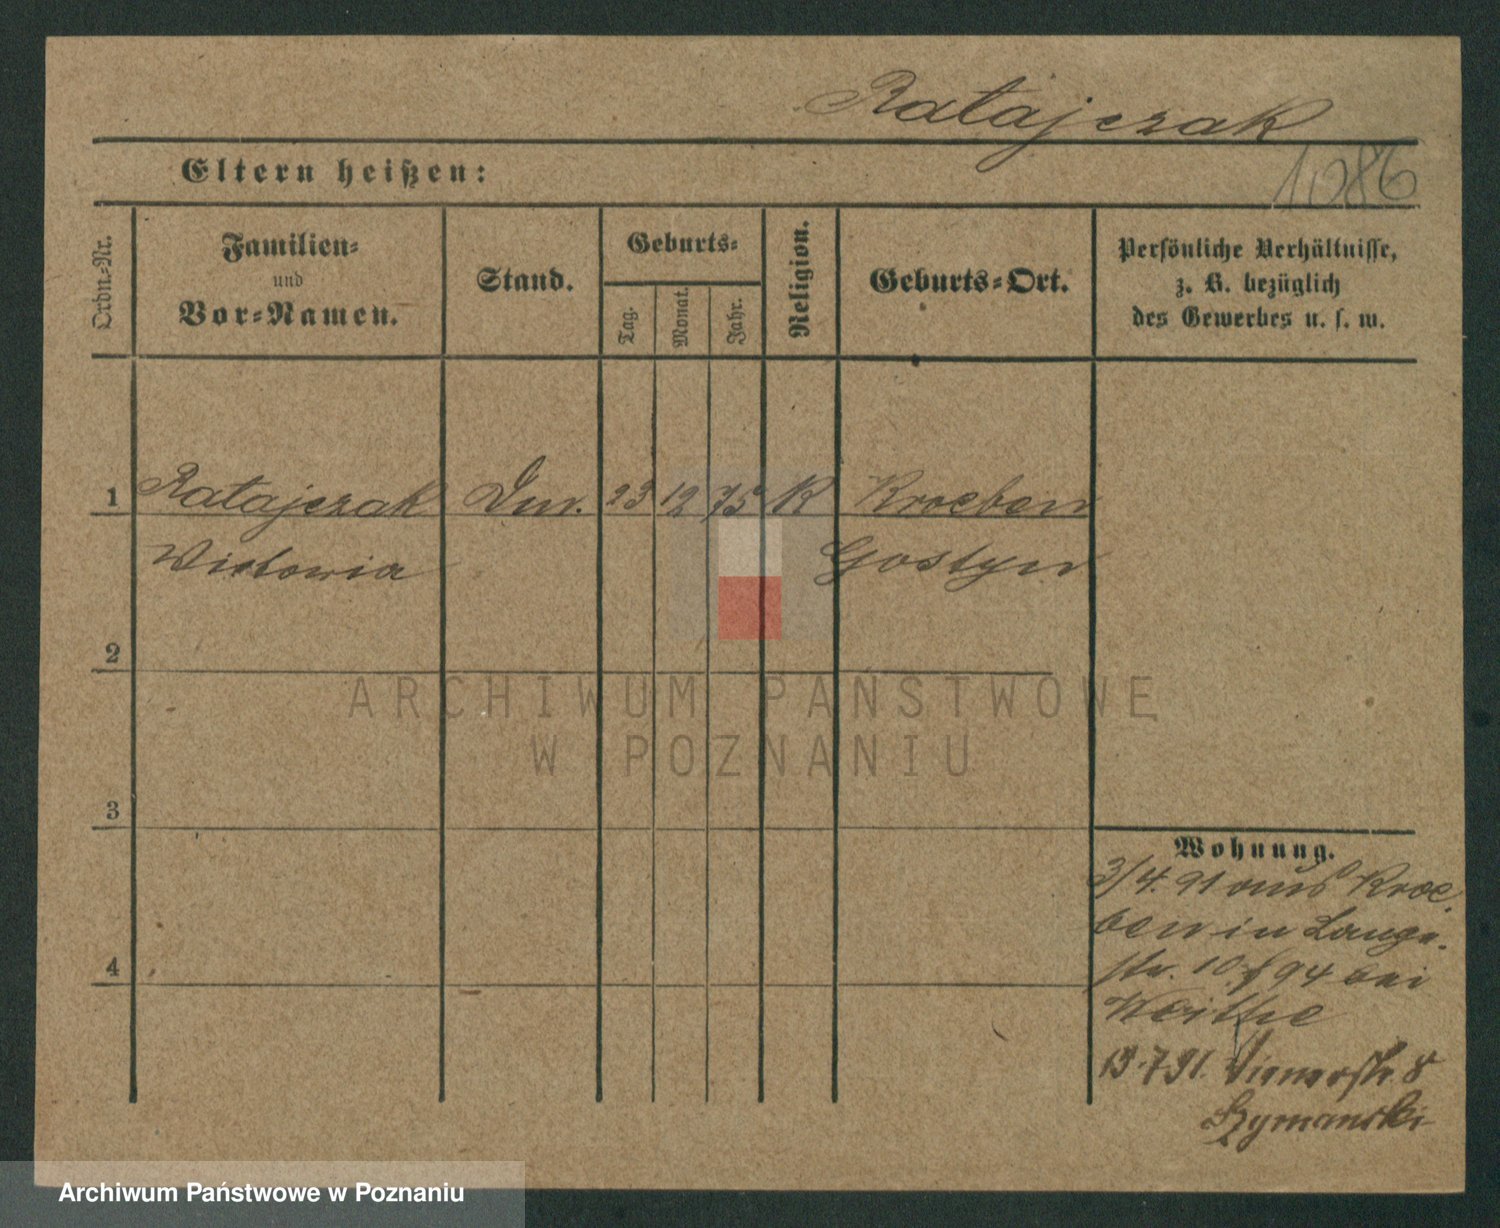 Ratajczak
1086
Eltern heißen:
Ordn.-Nr.
Familien-
und
Vor-Namen.
Stand.
Geburts-
Tag.
Monat.
Jahr.
Religion.
Geburts-Ort.
Persönliche Verhältnisse,
z. B. bezüglich
des Gewerbes u. s. w.
1 Ratajczak 23 12 75 K Kroeben
Wictoria Gostyn
2
3
4
ARCHIWUM PAŃSTWOWE
W POZNANIU
Wohnung.
3/4. 91 aus Kroe-
ben in Lange-
str. 10 94 bei
13.7 91. 8
Szymanski
Archiwum Państwowe w Poznaniu